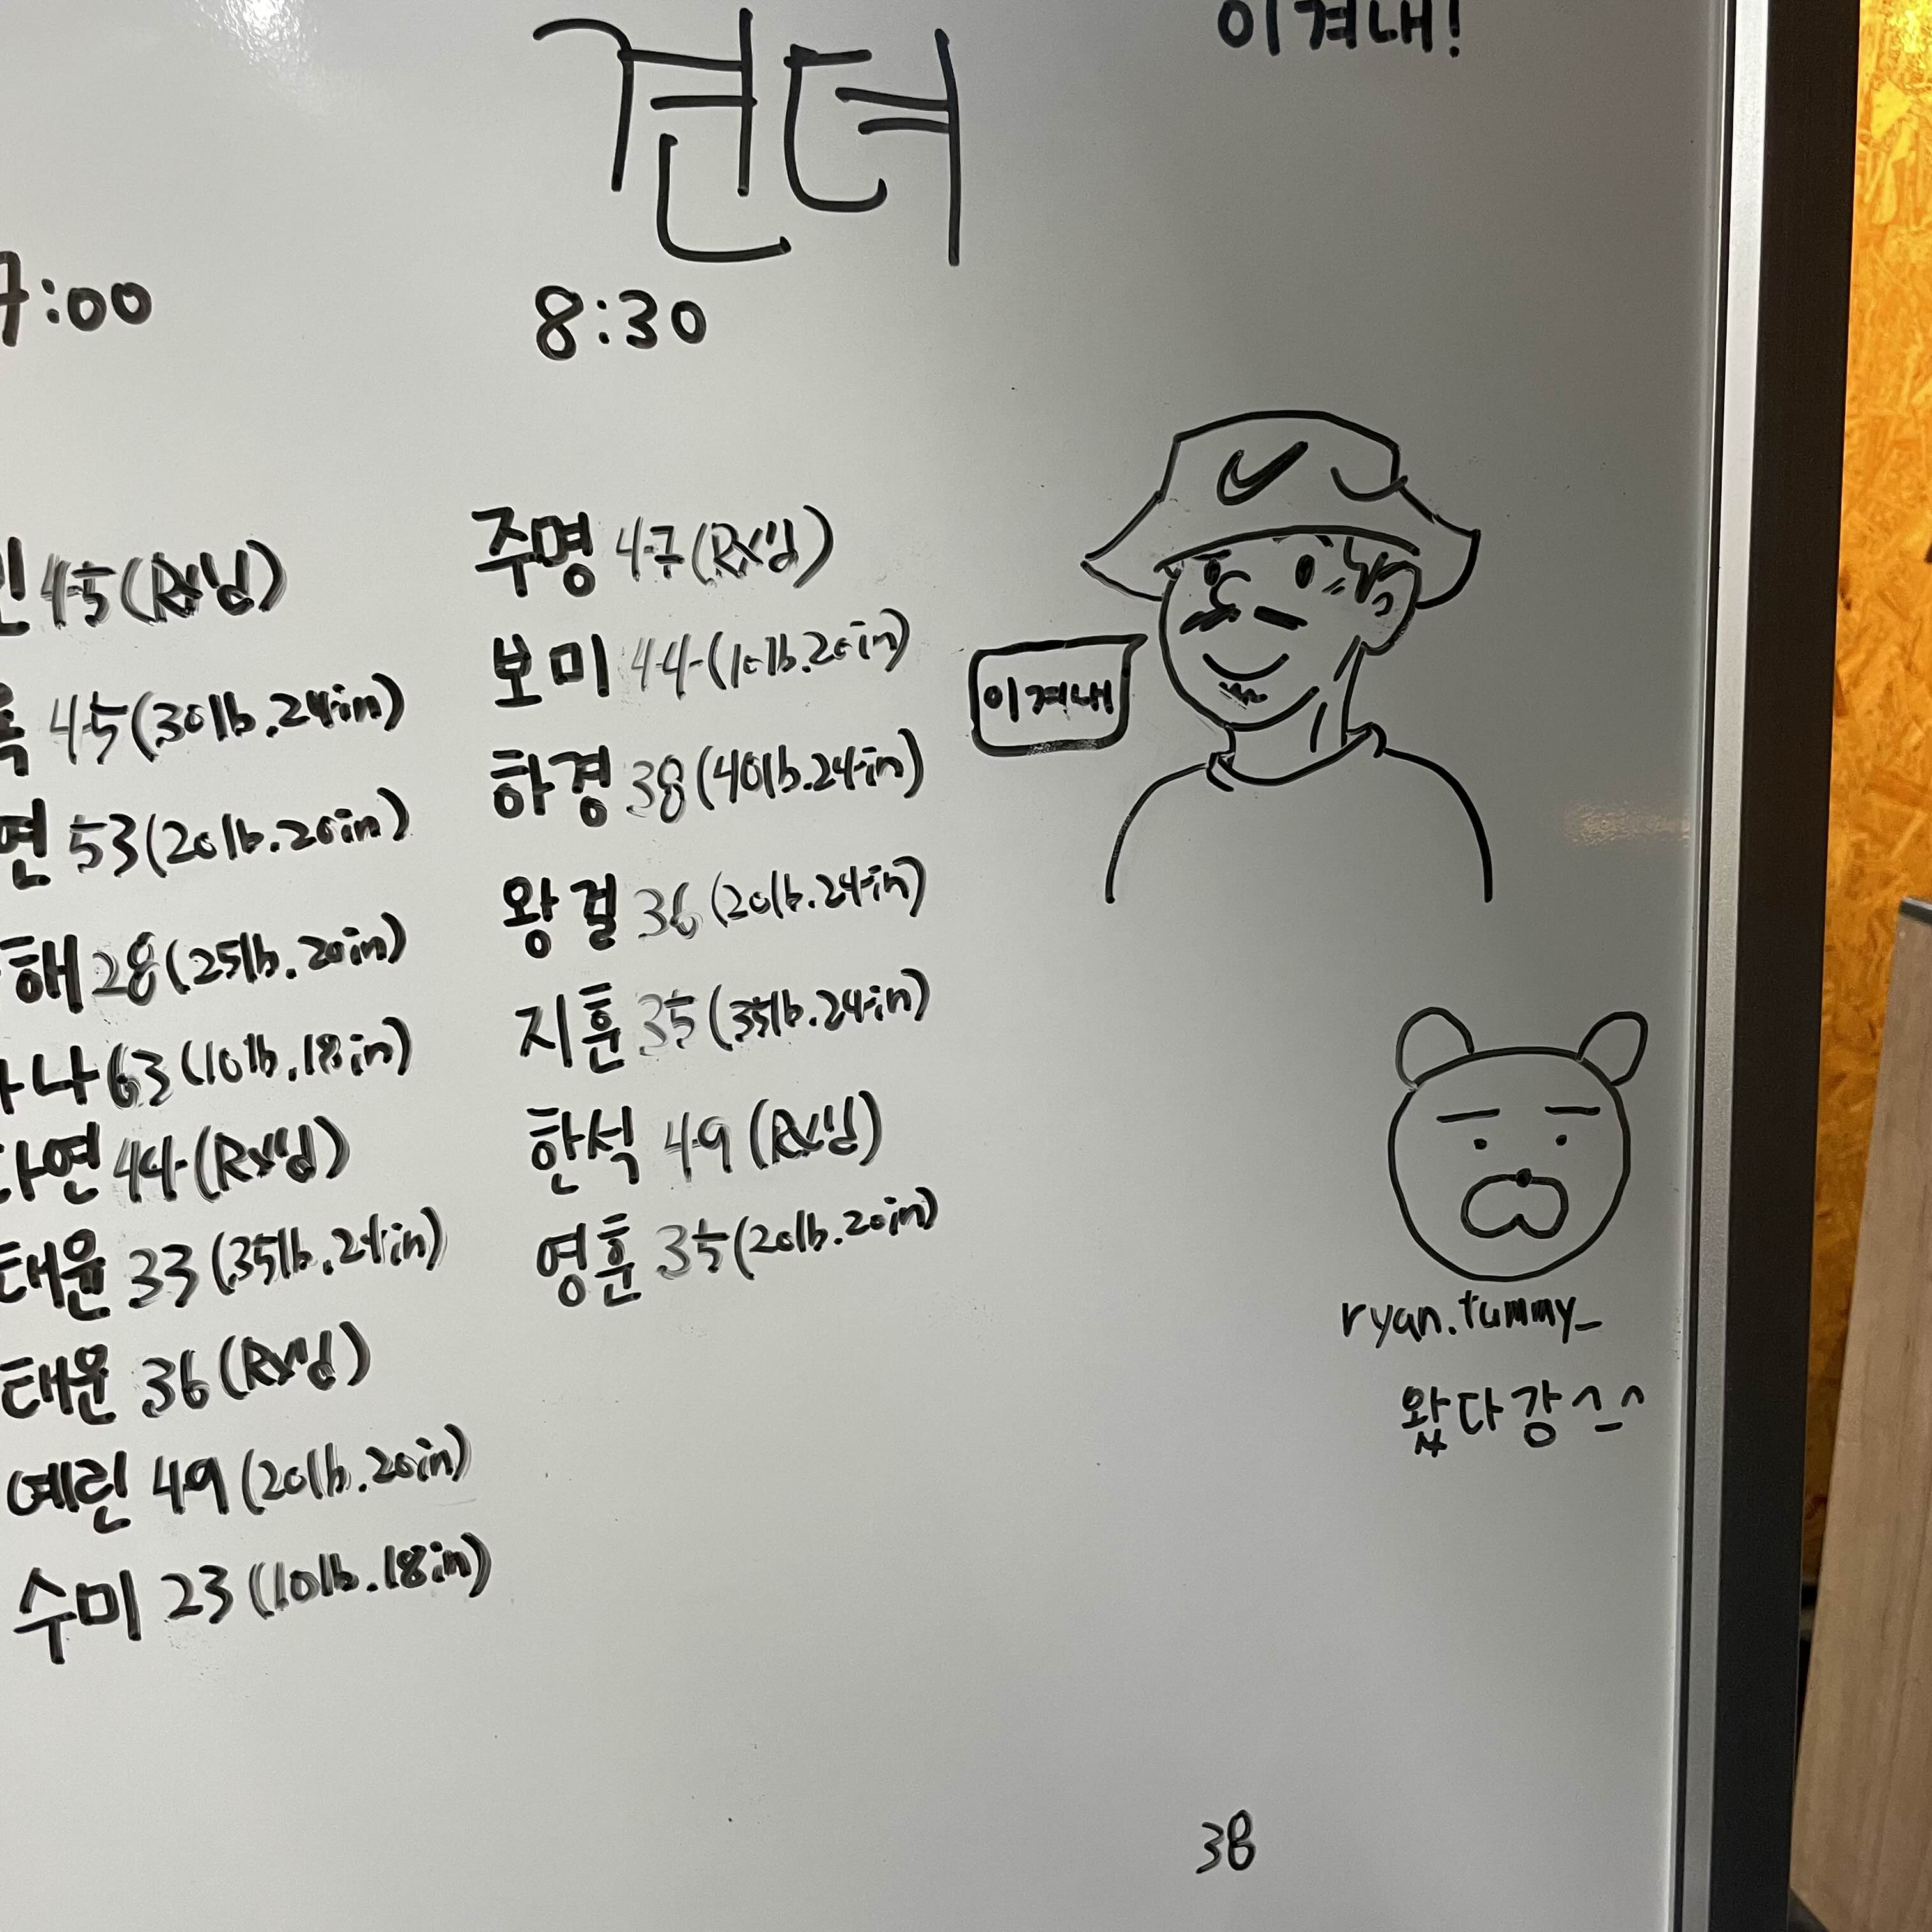 이겨내!
견뎌
7:00
8:30
45(Rx'd)
45(30lb.24in)
연 53(20lb.20in)
해 28(25lb.20in)
나 63(10lb.18in)
연 44(Rx'd)
태윤 33(35lb.24in)
태운 36(Rx'd)
예린 49(20lb.20in)
수미 23(10lb.18in)
주명 47(Rx'd)
보미 44(10lb.20in)
하경 38(40lb.24in)
왕걸 36(20lb.24in)
지훈 35(35lb.24in)
한석 49(Rx'd)
영훈 35(20lb.20in)
이겨내
ryan.tummy_
왔다강^_^
38